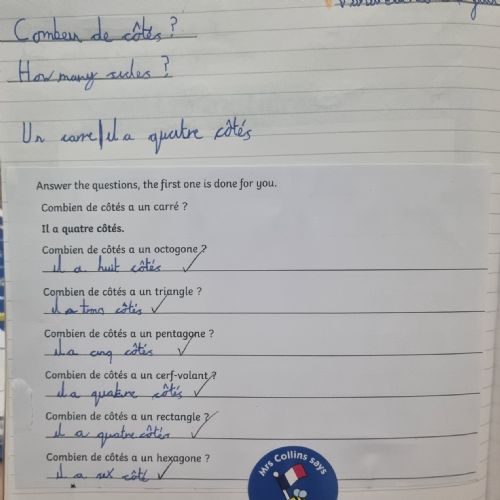 Combien de côtés ?
How many sides ?
Un carre il a quatre côtés
Answer the questions, the first one is done for you.
Combien de côtés a un carré ?
Il a quatre côtés.
Combien de côtés a un octogone ?
il a huit côtés
Combien de côtés a un triangle ?
il a trois côtés
Combien de côtés a un pentagone ?
il a cinq côtés
Combien de côtés a un cerf-volant ?
il a quatre côtés
Combien de côtés a un rectangle ?
il a quatre côtés
Combien de côtés a un hexagone ?
il a six côté
Mrs Collins says